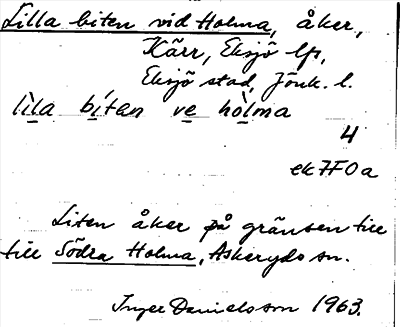 Lilla biten vid Holma, åker,
Kärr, Eksjö lfs,
Eksjö stad, Jönk. l.
lìla bítan ve hòlma
4
ek 7F0a
Liten åker på gränsen till
till Södra Holma, Askeryds sn.
Inger Danielsson 1963.